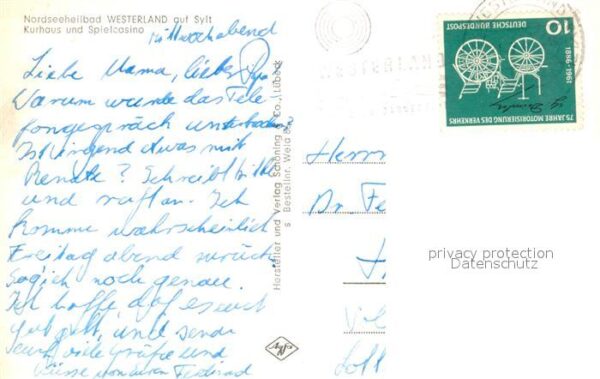 Nordseeheilbad WESTERLAND auf Sylt
Kurhaus und Spielcasino
Mittwochabend
Liebe Mama, lieber Papa
Warum wurde das Tele-
fongespräch unterbrochen
Ist irgend etwas mit
Renate? Schreibt bitte
und ruft an. Ich
komme wahrscheinlich
Freitag abend zurück
noch genau.
Ich hoffe, daß es euch
gut geht, und sende
euch viele Grüße und
Küsse von eurem
Hersteller und Verlag Schöning & Co., Lübeck
s Bestellnr. Weld
Agfa
Herrn
Dr. Fe
10
DEUTSCHE BUNDESPOST
1886-1961
75 JAHRE MOTORISIERUNG DES VERKEHRS
privacy protection
Datenschutz